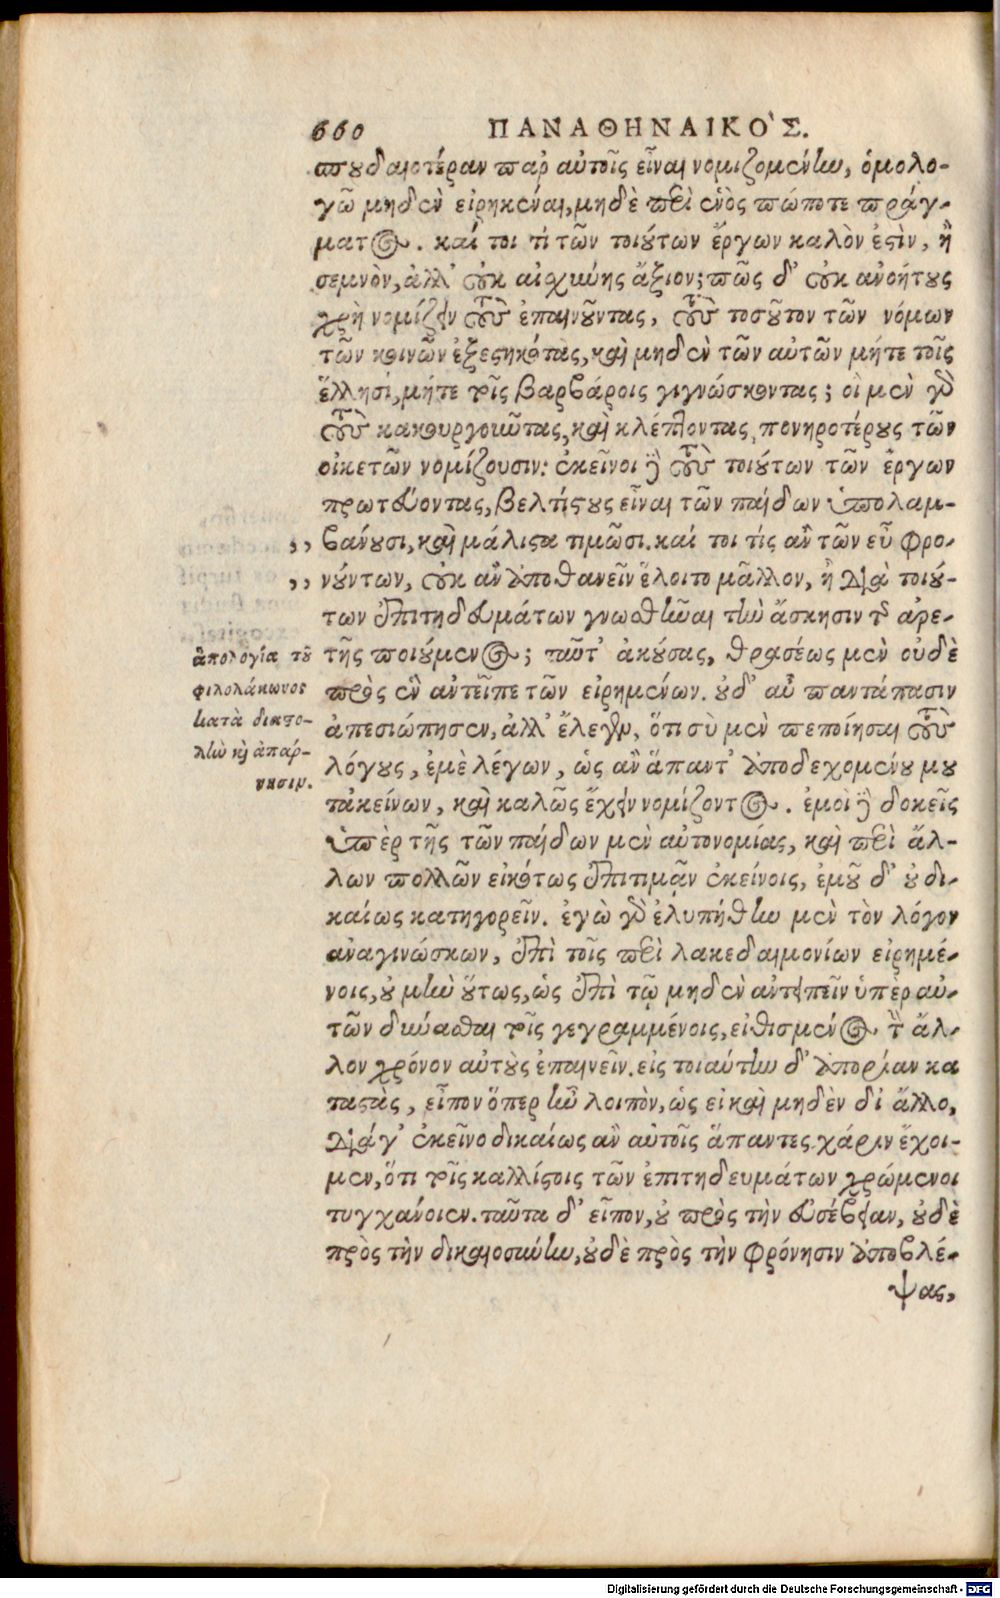 660 ΠΑΝΑΘΗΝΑΙΚΟ`Σ.
σπουδαιοτέραν παρ αὐτοῖς εἶναι νομιζομένην, ὁμολο-
γῶ μηδὲν εἰρηκέναι, μηδὲ περὶ ἑνὸς πώποτε πράγ-
ματος. καί τοι τί τῶν τοιούτων ἔργων καλὸν ἐστὶν, ἢ
σεμνὸν, ἀλλ' οὐκ αἰσχύνης ἄξιον; πῶς δ' οὐκ ἀνοήτους
χρὴ νομίζειν τοὺς ἐπαινοῦντας, τοὺς τοσοῦτον τῶν νόμων
τῶν κοινῶν ἐξεστηκότας, καὶ μηδὲν τῶν αὐτῶν μήτε τοῖς
ἕλλησι, μήτε τοῖς βαρβάροις γιγνώσκοντας; οἱ μὲν γὰρ
τοὺς κακουργοῦντας, καὶ κλέπτοντας, πονηροτέρους τῶν
οἰκετῶν νομίζουσιν: ἐκεῖνοι δὲ τοὺς τοιούτων τῶν ἔργων
πρωτεύοντας, βελτίστους εἶναι τῶν παίδων ὑπολαμ-
,, βάνουσι, καὶ μάλιστα τιμῶσι. καί τοι τίς ἂν τῶν εὖ φρο-
,, νούντων, οὐκ ἂν ἀποθανεῖν ἕλοιτο μᾶλλον, ἢ διὰ τοιού-
των ἐπιτηδευμάτων γνωσθῆναι τὴν ἄσκησιν τῆς ἀρε-
τῆς ποιούμενος; ταῦτ' ἀκούσας, θρασέως μὲν οὐδὲ
πρὸς ἓν ἀντεῖπε τῶν εἰρημένων. οὐδ' αὖ παντάπασιν
ἀπεσιώπησεν, ἀλλ' ἔλεγεν, ὅτι σὺ μὲν πεποίησαι τοὺς
λόγους, ἐμὲ λέγων, ὡς ἂν ἅπαντ' ἀποδεχομένου μου
τἀκείνων, καὶ καλῶς ἔχειν νομίζοντος. ἐμοὶ δὲ δοκεῖς
ὑπὲρ τῆς τῶν παίδων μὲν αὐτονομίας, καὶ περὶ ἄλ-
λων πολλῶν εἰκότως ἐπιτιμᾶν ἐκείνοις, ἐμοῦ δ' οὐ δι-
καίως κατηγορεῖν. ἐγὼ γὰρ ἐλυπήθην μὲν τὸν λόγον
ἀναγινώσκων, ἐπὶ τοῖς περὶ λακεδαιμονίων εἰρημέ-
νοις, οὐ μὴν οὕτως, ὡς ἐπὶ τῷ μηδὲν ἀντειπεῖν ὑπὲρ αὐ-
τῶν δύνασθαι τοῖς γεγραμμένοις, εἰθισμένος τὸν ἄλ-
λον χρόνον αὐτοὺς ἐπαινεῖν. εἰς τοιαύτην δ' ἀπορίαν κα
ταστὰς, εἶπον ὅπερ ἦν λοιπὸν, ὡς εἰ καὶ μηδὲν δι' ἄλλο,
διά γ' ἐκεῖνο δικαίως ἂν αὐτοῖς ἅπαντες χάριν ἔχοι-
μεν, ὅτι τοῖς καλλίστοις τῶν ἐπιτηδευμάτων χρώμενοι
τυγχάνοιεν. ταῦτα δ' εἶπον, οὐ πρὸς τὴν εὐσέβειαν, οὐδὲ
πρὸς τὴν δικαιοσύνην, οὐδὲ πρὸς τὴν φρόνησιν ἀποβλέ-
ψας,
ἀπολογία τοῦ
φιλολάκωνος
κατὰ δικτο-
λὴν καὶ ἀπάρ-
νησιν.
Digitalisierung gefördert durch die Deutsche Forschungsgemeinschaft - DFG